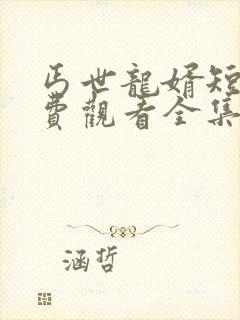 丐世龍婿短
費觀看全集
涵哲